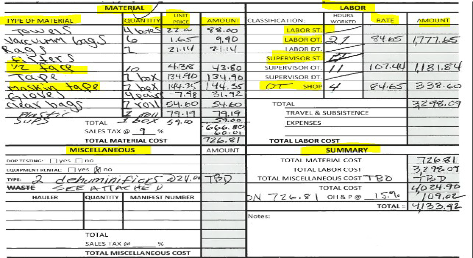 MATERIAL
TYPE OF MATERIAL QUANTITY UNIT PRICE AMOUNT
Towels 4 boxes 22.00 88.00
Vacuum bags 6 1.65 9.90
Rags 2 21.14
Filters
1/2 face
10 4.38 43.80
Tape 1 box 134.90 134.90
Masking tape 1 box 144.35 144.35
Gloves 4 pair 7.98 31.92
Clear bags 1 roll 54.60 54.60
Plastic 1 roll 79.19 79.19
1 box 59.00 59.00
666.80
SALES TAX @ 9 % 60.01
TOTAL MATERIAL COST 726.81
LABOR
CLASSIFICATION: HOURS WORKED RATE AMOUNT
LABOR ST.
LABOR OT. 21 84.65 1,777.65
LABOR DT.
SUPERVISOR ST.
SUPERVISOR OT. 11 107.44 1,181.84
SUPERVISOR DT.
OT SHOP 4 84.65 338.60
TOTAL 3298.09
TRAVEL & SUBSISTENCE
EXPENSES
TOTAL LABOR COST
MISCELLANEOUS AMOUNT
yes no
EQUIPMENT RENTAL yes no
TYPE 2 dehumidifiers 224.00 TBD
WASTE SEE ATTACHED
HAULER QUANTITY MANIFEST NUMBER
TOTAL
SALES TAX @ %
TOTAL MISCELLANEOUS COST
SUMMARY
TOTAL MATERIAL COST 726.81
TOTAL LABOR COST 3,298.09
TOTAL MISCELLANEOUS COST TBD TBD
TOTAL COST 4024.90
ON 726.81 OH&P @ 15% 109.02
TOTAL= 4133.92
Notes: